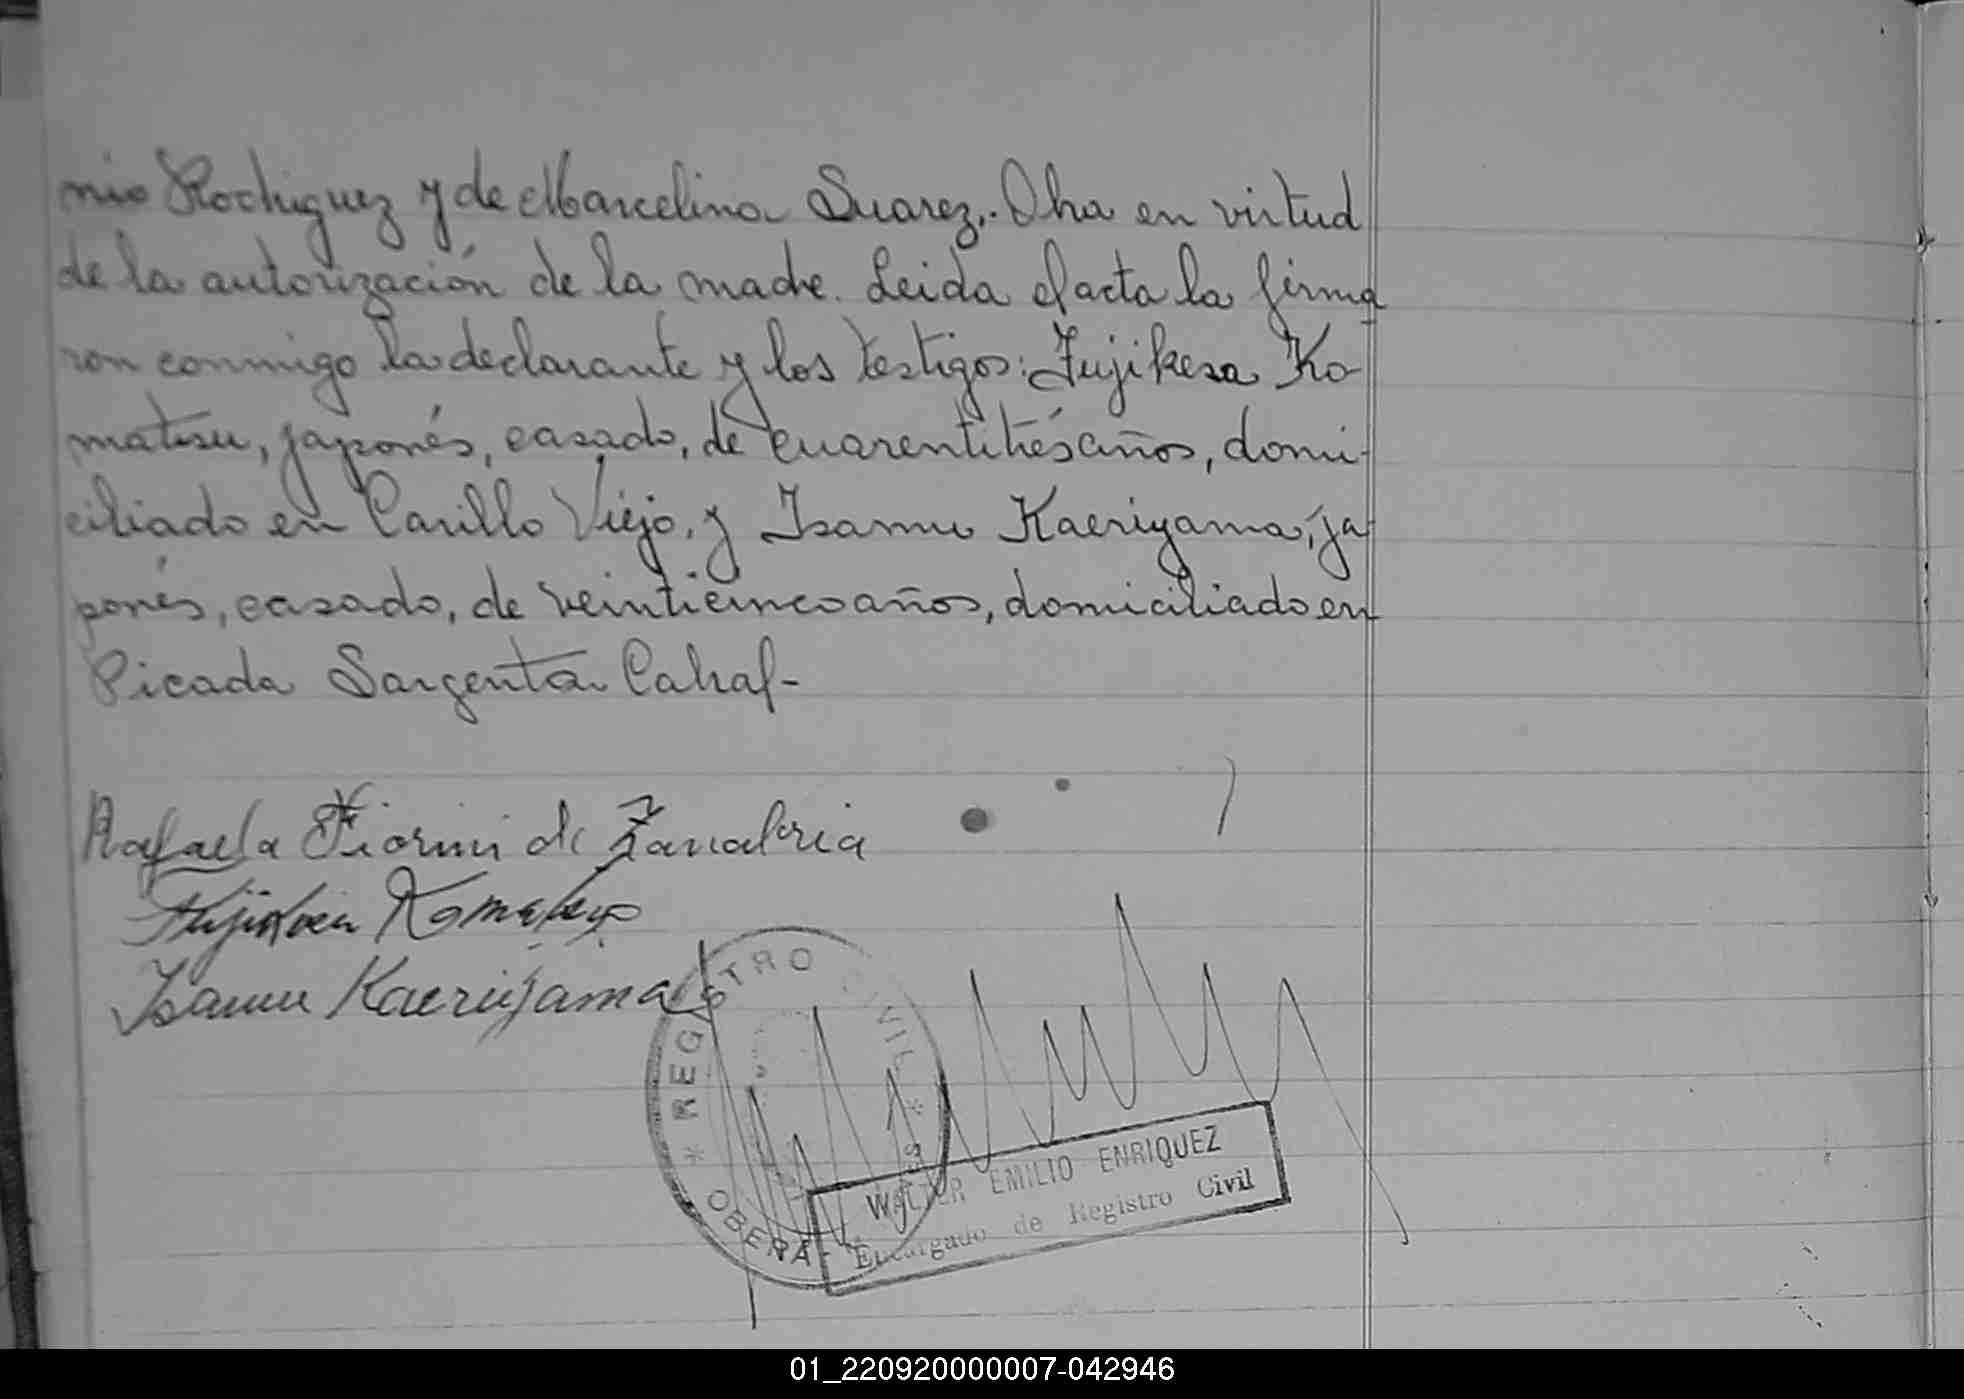 nio Rodriguez y de Marcelina Suarez. Obra en virtud
de la autorización de la madre. Leida el acta la firma
ron conmigo la declarante y los testigos: Fujikesa Ko-
matsu, japonés, casado, de cuarentitrés años, domi-
ciliado en Cerillo Viejo, y Isamu Kaeriyama, ja
ponés, casado, de veinticinco años, domiciliado en
Picada Sargento Cabral-
Rafaela Fiorini de Zanabria
Komatsu
Isamu Kaeriyama
* REGISTRO CIVIL *
OBERA
WALTER EMILIO ENRIQUEZ
Encargado de Registro Civil
01_220920000007-042946